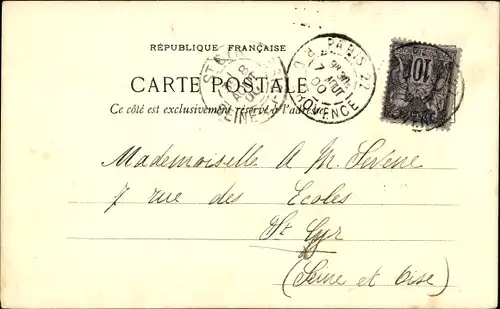 RÉPUBLIQUE FRANÇAISE
CARTE POSTALE
Ce côté est exclusivement réservé à l'adresse
PARIS 22
7
AOUT
00
PROVENCE
10
Mademoiselle A M. Sirène
7 rue des Ecoles
St Cyr
(Seine et Oise)